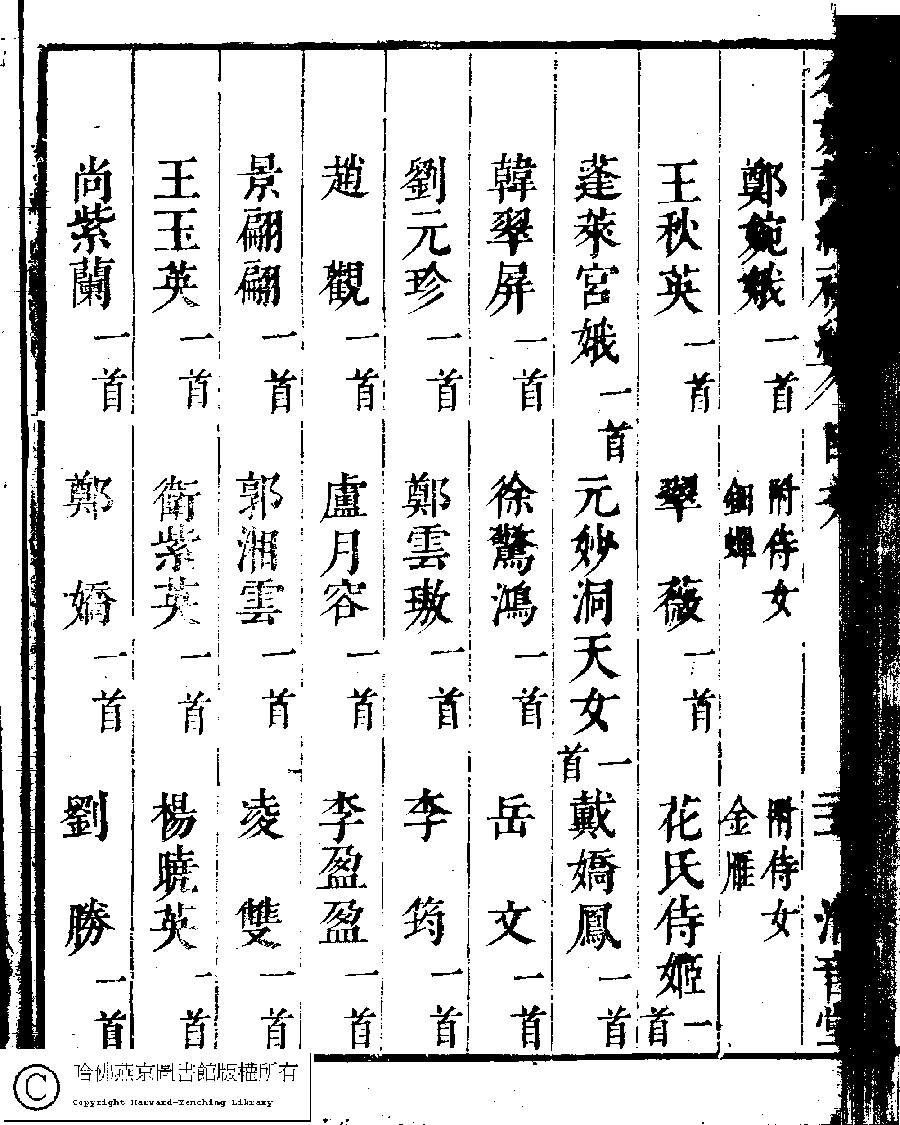 鄭婉娥一首 附侍女鈿蟬 附侍女金雁
王秋英一首 翠薇一首 花氏侍姬一首
蓬萊宮娥一首 元妙洞天女一首 戴嬌鳳一首
韓翠屏一首 徐驚鴻一首 岳文一首
劉元珍一首 鄭雲璈一首 李筠一首
趙觀一首 盧月容一首 李盈盈一首
景翩翩一首 郭湘雲一首 凌雙一首
王玉英一首 衛紫英一首 楊曉英一首
尚紫蘭一首 鄭嬌一首 劉勝一首
哈佛燕京圖書館版權所有
Copyright Harvard-Yenching Library